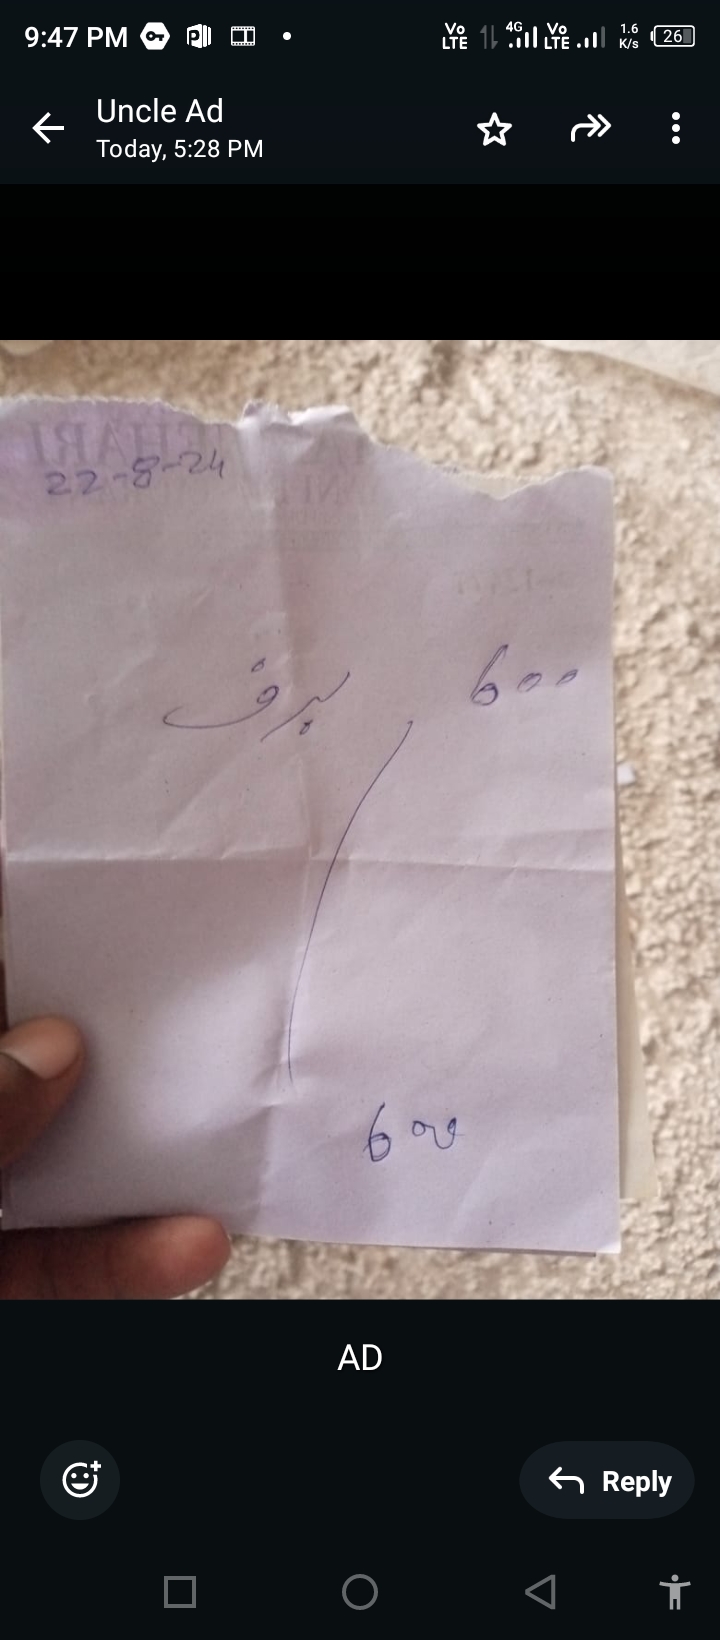 9:47 PM
Vo LTE 4G Vo LTE 1.6 K/s 26
Uncle Ad
Today, 5:28 PM
22-8-24
برف 600
600
AD
Reply